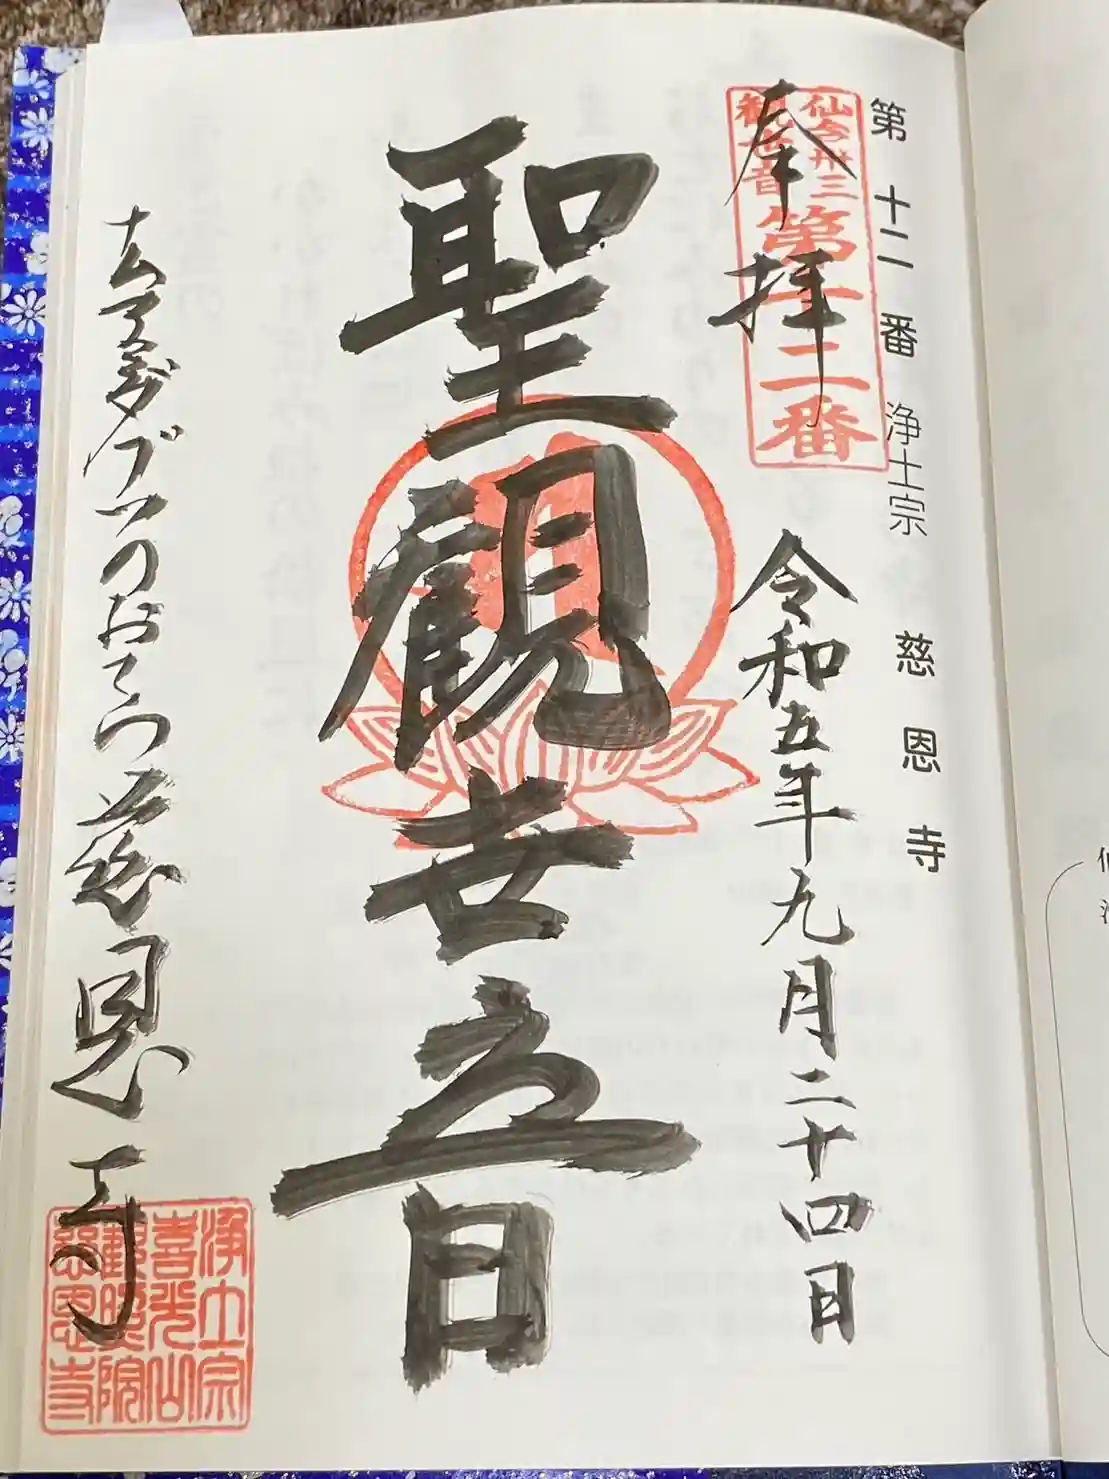 第十二番 浄土宗 慈恩寺
奉拝
仙台卅三
観世音
第十二番
令和五年九月二十四日
聖観世音
ナムアミダブツのおてら 慈恩寺
浄土宗
喜光山
観照院
慈恩寺